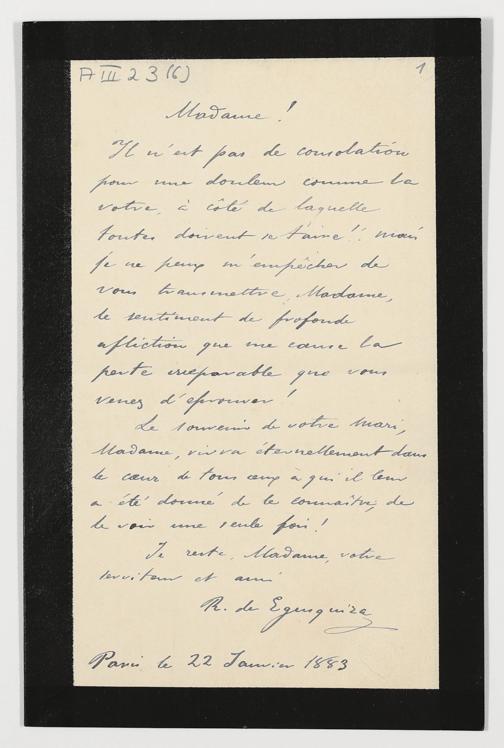 A III 23 (6)
1
Madame !
Il n'est pas de consolation
pour une douleur comme la
votre, à côté de laquelle
toutes doivent se taire !! mais
je ne peux m'empêcher de
vous transmettre, Madame,
le sentiment de profonde
afliction que me cause la
perte irreparable que vous
venez d'eprouver !
Le souvenir de votre mari,
Madame, vivra éternellement dans
le cœur de tous ceux à qui il leur
a été donné de le connaitre, de
le voir une seule fois !
Je reste, Madame, votre
serviteur et ami
R. de Egusquiza
Paris le 22 Janvier 1883